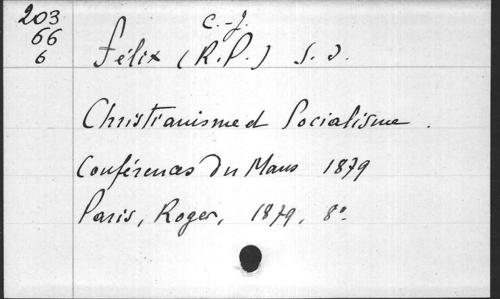 203
66
6
C.-J.
Félix (R.P.) S.J.
Christianisme et Socialisme.
Conférences du Mans 1879
Paris, Roger, 1879, 8°.